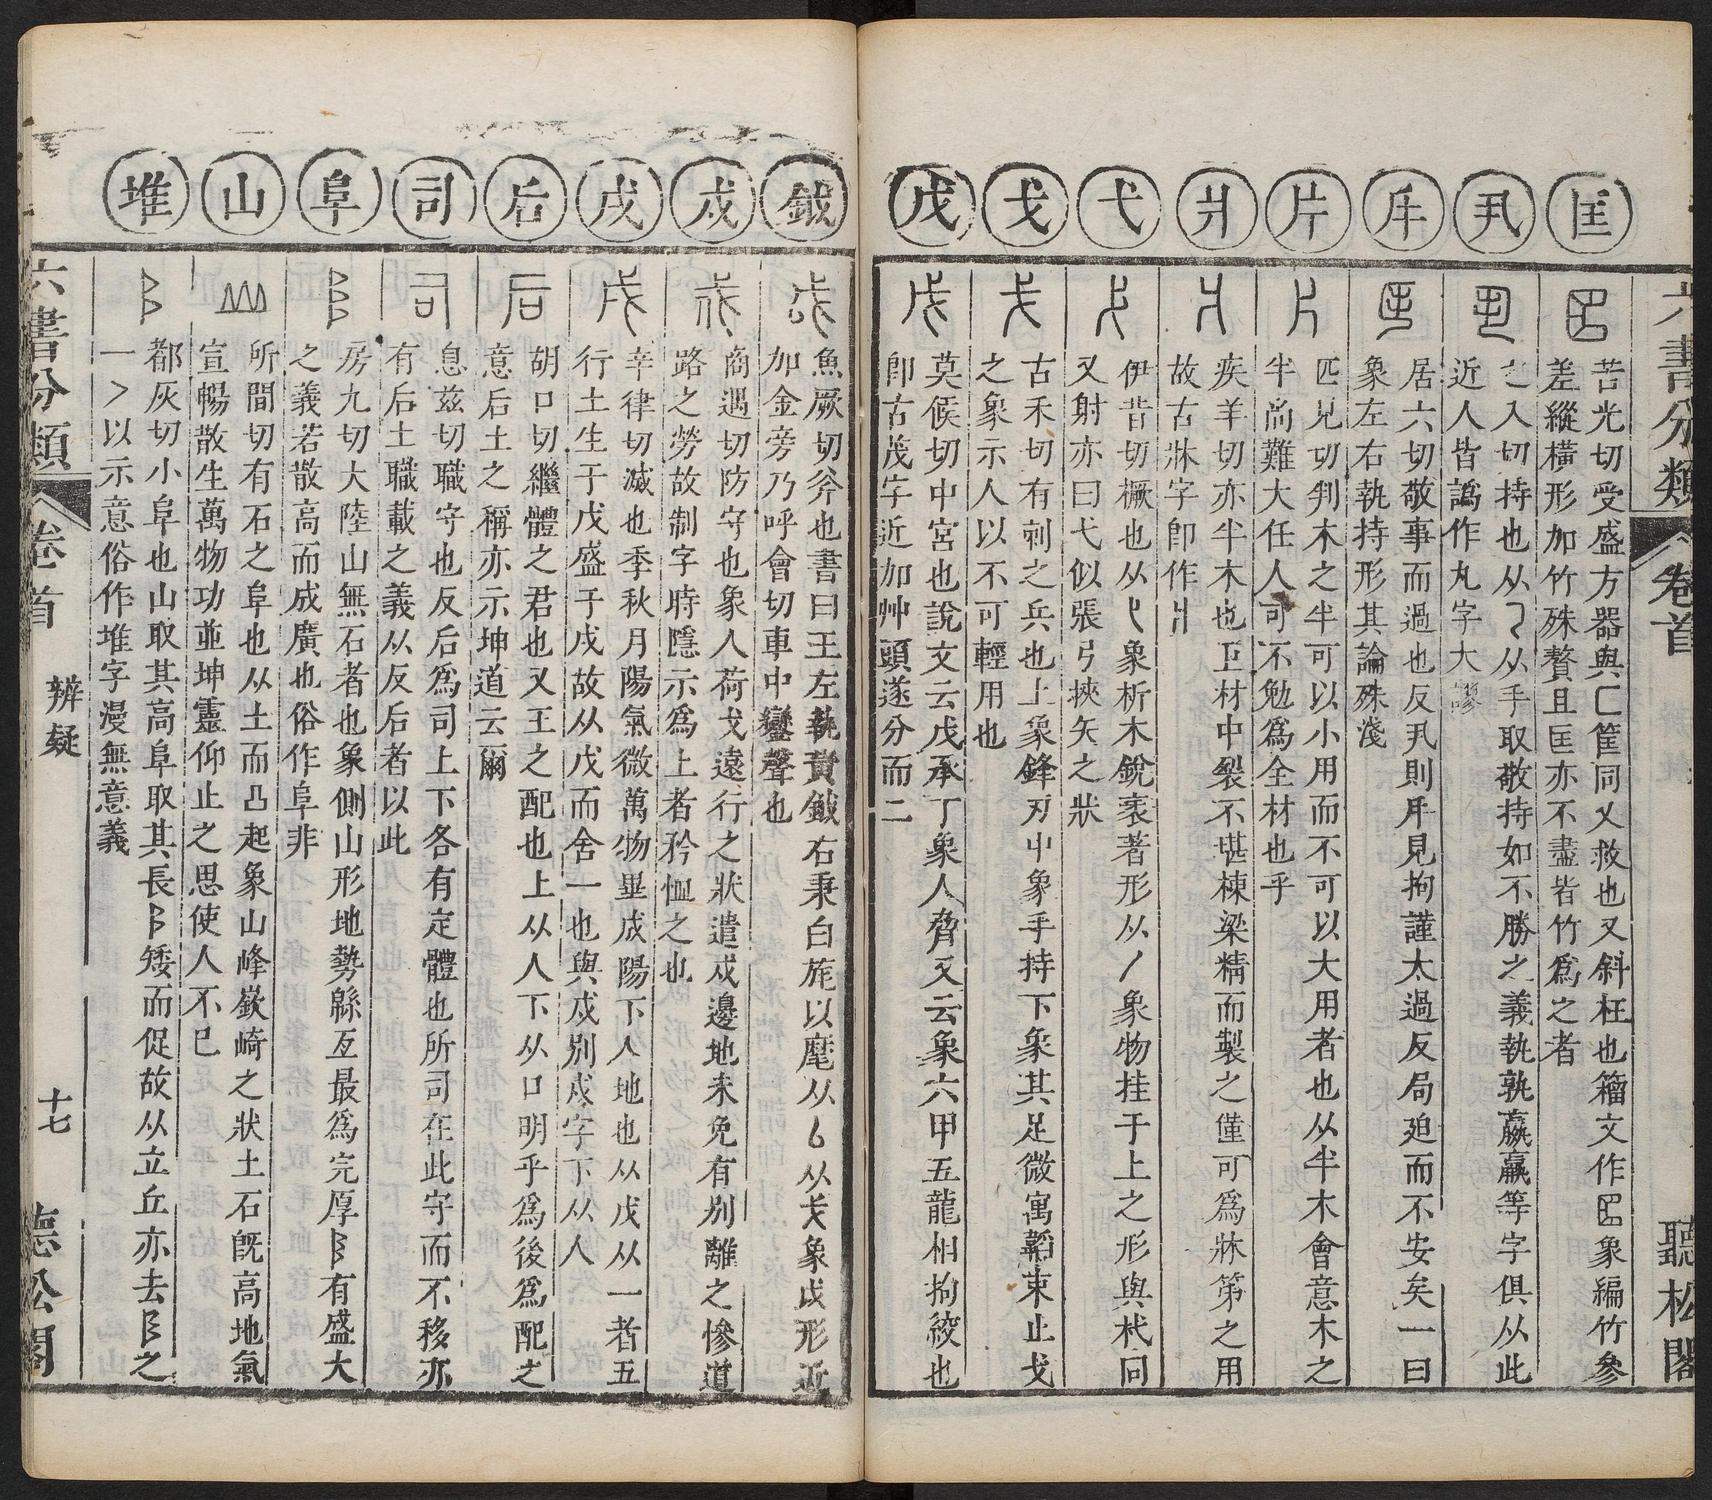 六書分類 卷首 聽松閣
匡
苦光切受盛方器與匚筐同又救也又斜枉也籀文作𠥓象編竹參
差縱橫形加竹殊贅且匡亦不盡皆竹爲之者
丮
入切持也从手取敬持如不勝之義執孰嬴羸等字俱从此
近人皆譌作丸字大謬
居六切敬事而過也反丮則見拘謹太過反局廹而不安矣一曰
象左右執持形其論殊淺
片
匹見切判木之半可以小用而不可以大用者也从半木會意木之
半尚難大任人可不勉爲全材也乎
爿
疾羊切亦半木也𠂇材中裂不堪棟梁精而製之僅可爲牀第之用
故古牀字卽作爿
弋
伊昔切橛也从象析木銳衺著形从丿象物挂于上之形與杙同
又射亦曰弋似張弓挾矢之狀
戈
古禾切有刺之兵也上象鋒刃中象手持下象其足微寓韜束止戈
之象示人以不可輕用也
戊
莫候切中宮也說文云戊承丁象人脅又云象六甲五龍相拘絞也
卽古茂字近加艸頭遂分而二
鉞
魚厥切斧也書曰王左執黃鉞右秉白旄以麾从从戈象戉形近
加金旁乃呼會切車中鑾聲也
戍
商遇切防守也象人荷戈遠行之狀遣戍邊地未免有別離之慘道
路之勞故制字時隱示爲上者矜恤之也
戌
辛律切滅也季秋月陽氣微萬物畢成陽下入地也从戊从一者五
行土生于戊盛于戌故从戊而含一也與戍別戍字下从人
后
胡口切繼體之君也又王之配也上从人下从口明乎爲後爲配之
意后土之稱亦示坤道云爾
司
息茲切職守也反后爲司上下各有定體也所司在此守而不移亦
有后土職載之義从反后者以此
阜
房九切大陸山無石者也象側山形地勢緜亙最爲完厚𨸏有盛大
之義若散高而成廣也俗作阜非
山
所間切有石之阜也从土而凸起象山峰嶔崎之狀土石旣高地氣
宣暢散生萬物功並坤靈仰止之思使人不已
堆
都灰切小阜也山取其高阜取其長𠂤矮而促故从立丘亦去𨸏之
一以示意俗作堆字漫無意義
六書分類 卷首 辨疑 十七 聽松閣